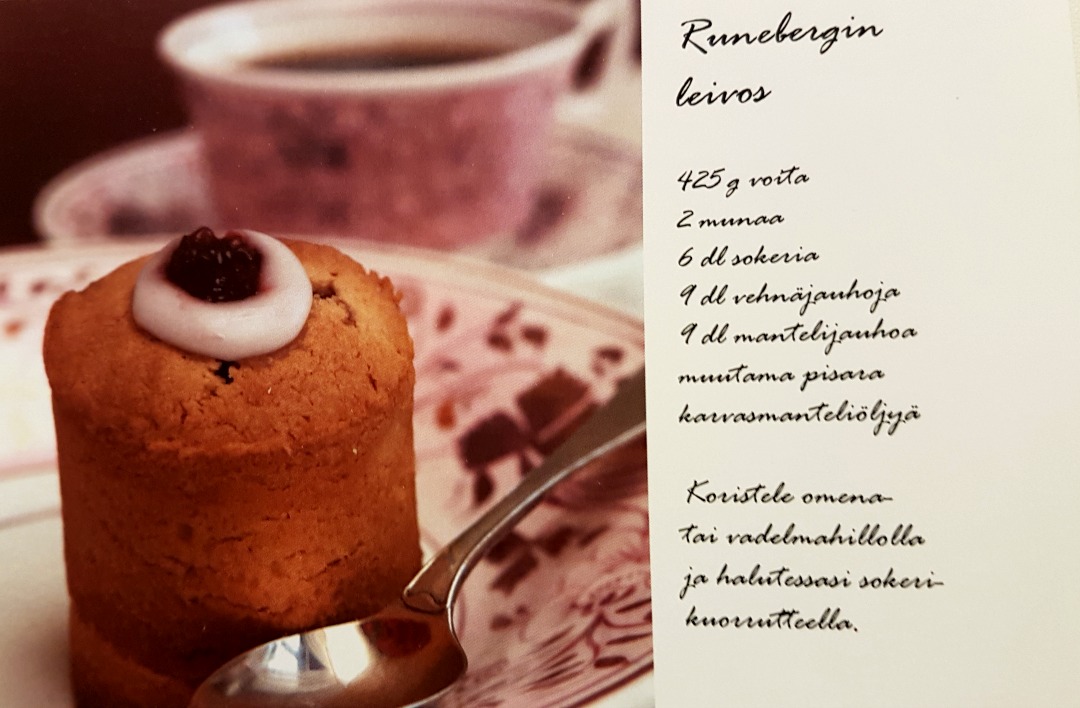 Runebergin
leivos
425 g voita
2 munaa
6 dl sokeria
9 dl vehnäjauhoja
9 dl mantelijauhoa
muutama pisara
karvasmanteliöljyä
Koristele omena-
tai vadelmahillolla
ja halutessasi sokeri-
kuorrutteella.